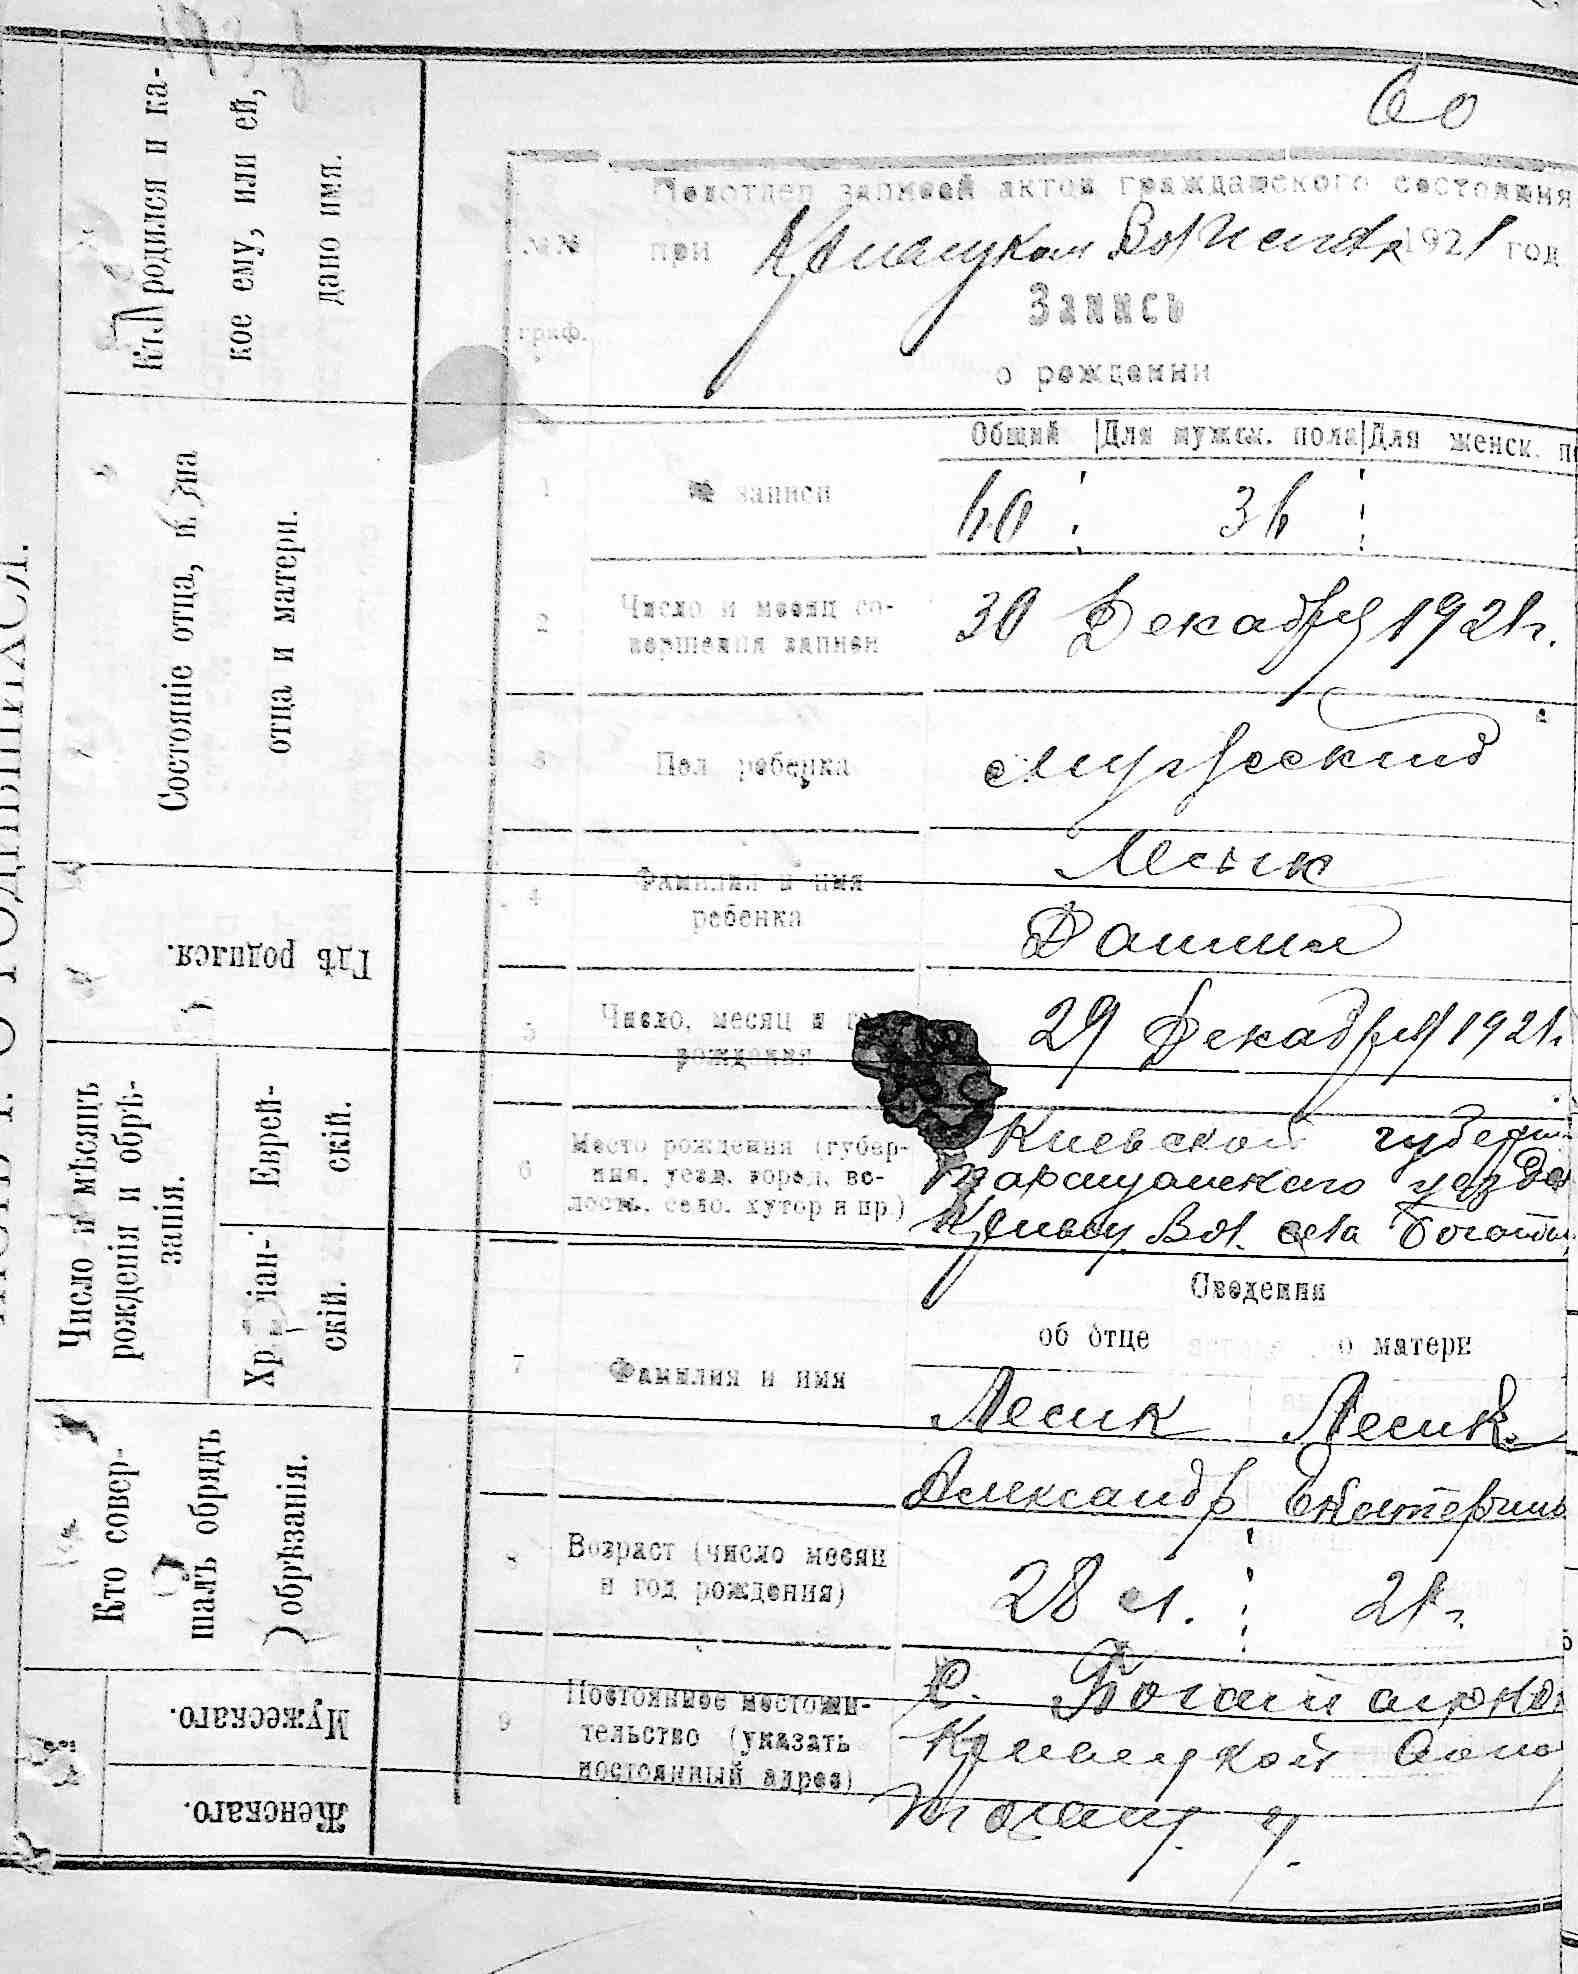 60
Подотдел записей актов гражданского состояния
№№ при Кривецком 1921 год
граф.
Запись
о рождении
Общий Для мужск. пола Для женск. п
1 № записи 60 36
2 Число и месяц со-
вершения записи 30 Декабря 1921 г.
3 Пол ребенка Мужеский
4 Фамилия и имя
ребенка
Лесик
Даниил
5 Число, месяц и г
рождения 29 Декабря 1921.
6 Место рождения (губер-
ния, уезд, город, во-
лость, село, хутор и пр.)
Киевской губерн
Таращанского уезда
Кривец. Вол. села
Сведения
об отце о матери
7 Фамилия и имя
Лесик Лесик
Александр Екатерина
8 Возраст (число месяц
и год рождения)
28 л. 21 г.
9 Постоянное местожи-
тельство (указать
постоянный адрес)
С.
Кривецкой
Таращ. у.
Кто родился и ка-
кое ему, или ей,
дано имя.
Состояніе отца, имена
отца и матери.
Гдѣ родился.
Число и мѣсяцъ
рожденія и обрѣ-
занія.
Еврей-
скій.
Христіан-
скій.
Кто совер-
шалъ обрядъ
обрѣзанія.
Мужескаго.
Женскаго.